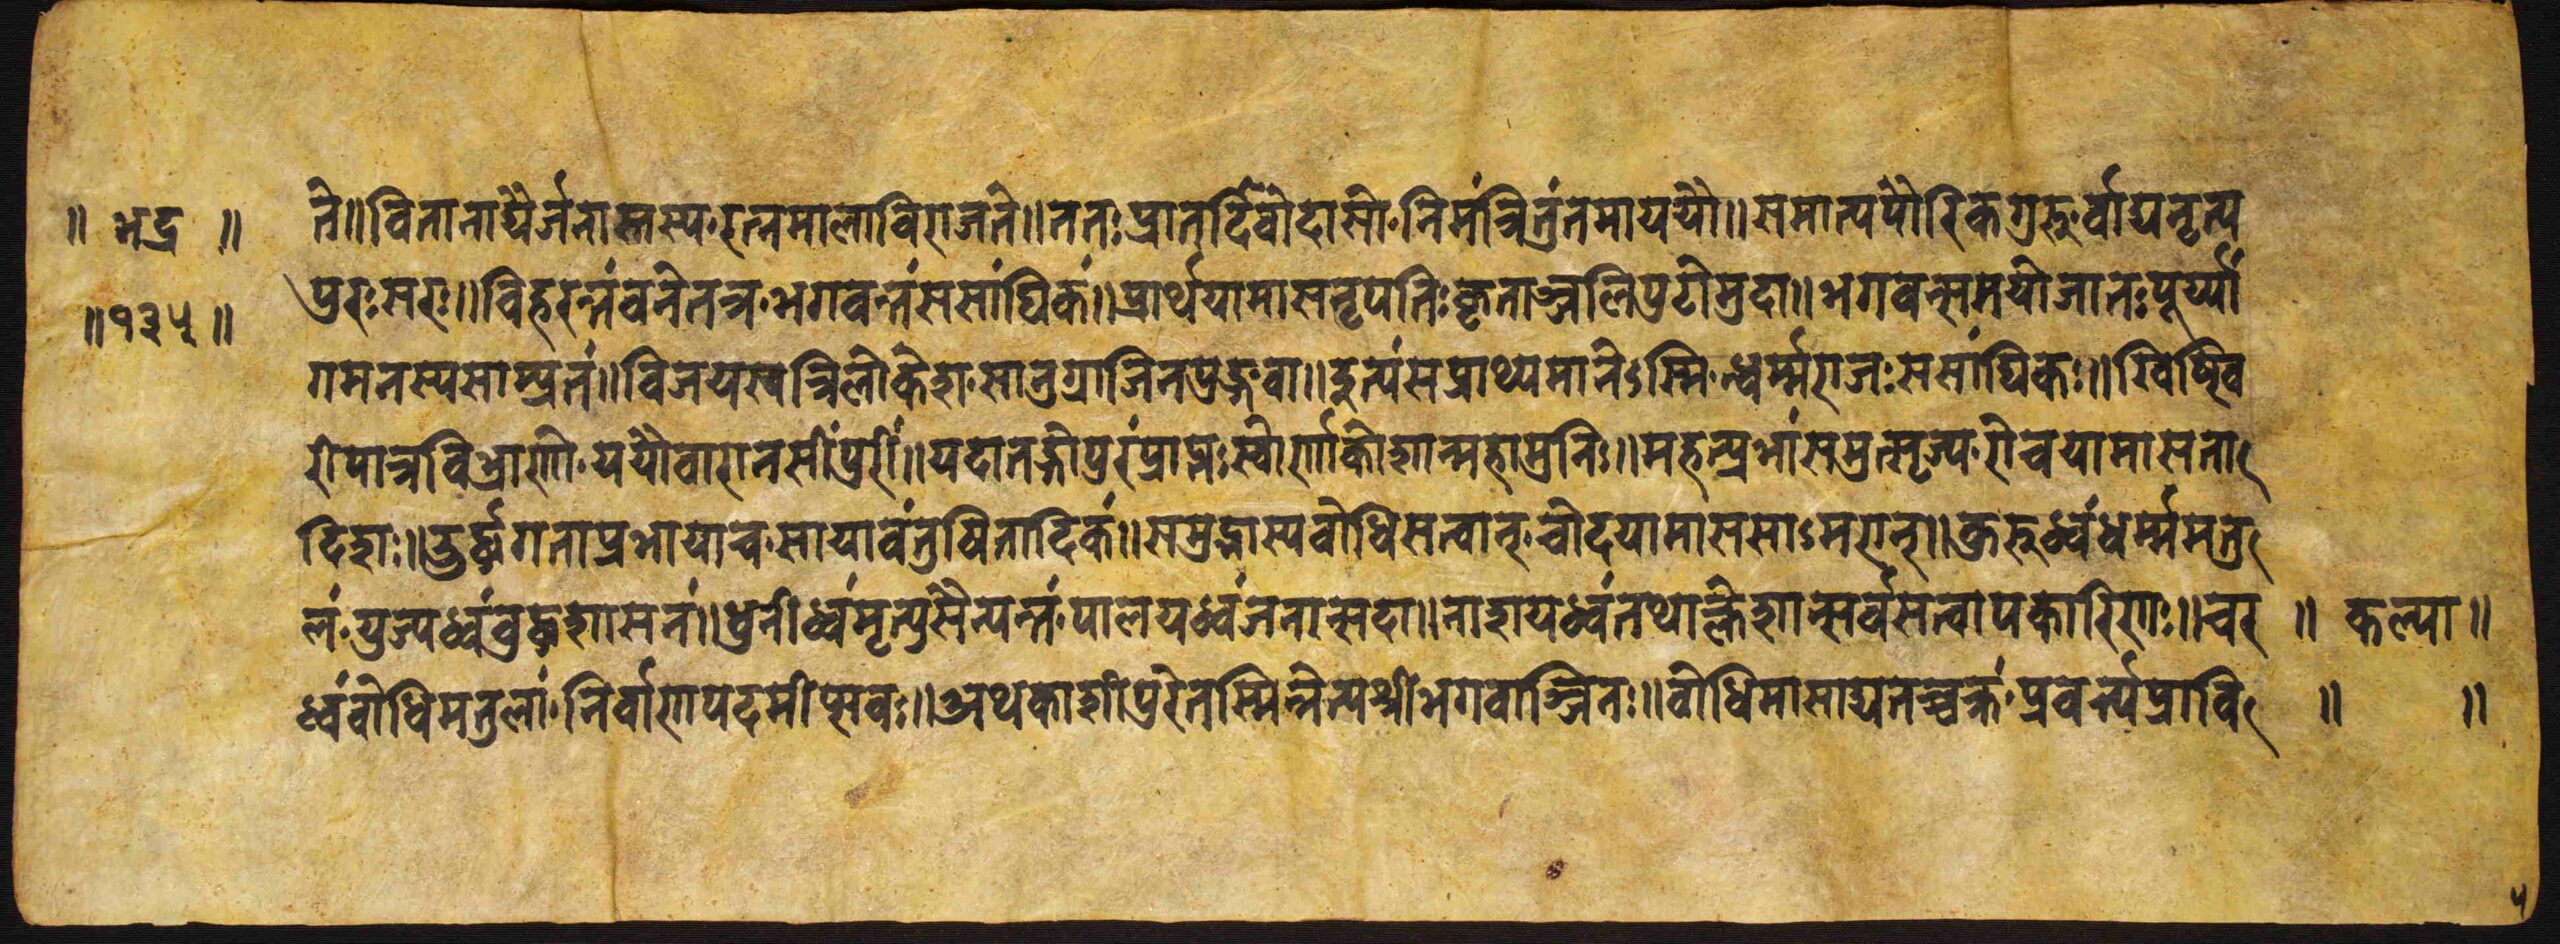 ॥ भद्र ॥
॥१३५॥
ते॥वितानाद्यैर्जनोल्लास्य,रत्नमालाविराजते॥ततःप्रातर्दिवोदासो,निमंत्रितुंतमाययौ॥समात्यपौरिकगुरु,र्वाद्यनृत्य
पुरःसरः॥विहरन्तंवनेतत्र,भगवन्तंससांघिकं॥प्रार्थयामासनृपतिःकृताञ्जलिपुटोमुदा॥भगवन्समयोजातःपूर्य्यां
गमनस्यसाम्प्रतं॥विजयस्वत्रिलोकेश,सानुग्राजिनपुङ्गवा॥इत्यंसप्रार्थ्यमानेऽस्मि,न्धर्म्मराजःससांघिकः॥खिखिव
रीपात्रविभ्राणो,ययौवारानसींपुरीं॥यदातङ्गोपुरंप्राप्तःस्वीर्णाकोशान्महामुनिः॥महत्प्रभांसमुत्सृज्य,रोचयामासता
दिशः॥ऊर्द्ध्वगताप्रभायाच,सायावंतुषितादिकं॥समुद्भास्यबोधिसत्वान्,चोदयामाससाऽमरान्॥कुरुध्वंधर्म्ममतु
लं,युज्यध्वंबुद्धशासनं॥धुनीध्वंमृत्युसैन्यन्तं,पालयध्वंजनान्सदा॥नाशयध्वंतथाक्लेशान्सर्वसत्वापकारिणः॥चर
ध्वंबोधिमतुलां,निर्वाणपदमीप्सवः॥अथकाशीपुरेतस्मिन्नेत्यश्रीभगवाञ्जिनः॥बोधिमासाद्यतच्चक्रं,प्रवर्त्यप्रावि
॥ कल्पा ॥
॥ ॥
५